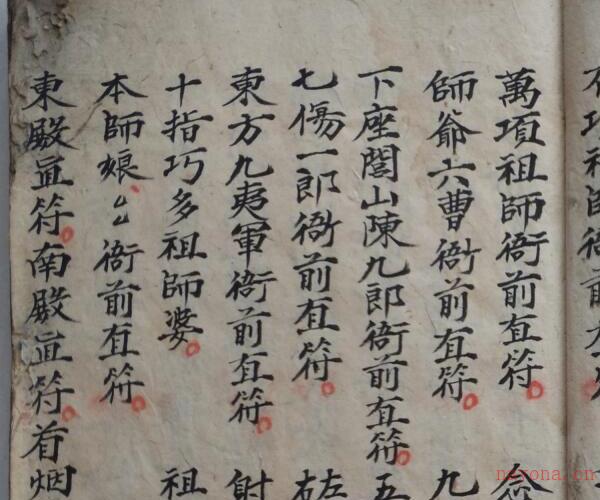 萬項祖師衙前直符
師爺六曹衙前直符 九
下座閭山陳九郎衙前直符 五
七傷一郎衙前直符 左
東方九夷軍衙前直符 射
十指巧多祖師婆 祖
本師娘〻衙前直符
東殿直符南殿直符首烟
neyona.cn